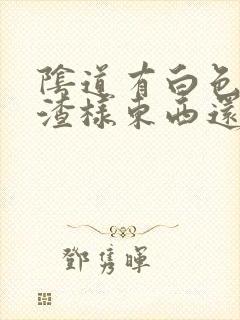 陰道有白色
渣樣東西還
鄧雋暉